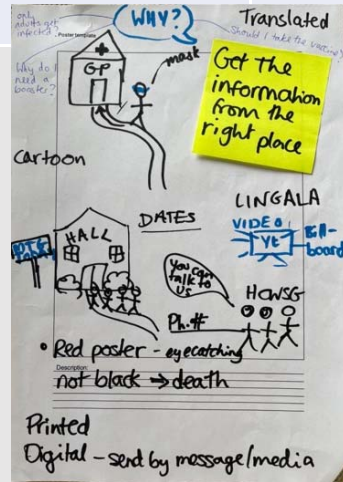 only
adults get
infected
WHY?
Translated
Should I take the vaccine?
Poster template
Why do I
need a
booster?
GP
mask
Get the
information
from the
right place
Cartoon
LINGALA
DATES
VIDEO
Yt
Bill-
board
HALL
You can
talk to
us
HOWSG
Ph.#
• Red poster - eyecatching
Description:
not black → death
Printed
Digital - send by message/media